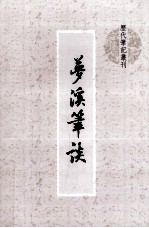 歷代筆記叢刊
夢溪筆談